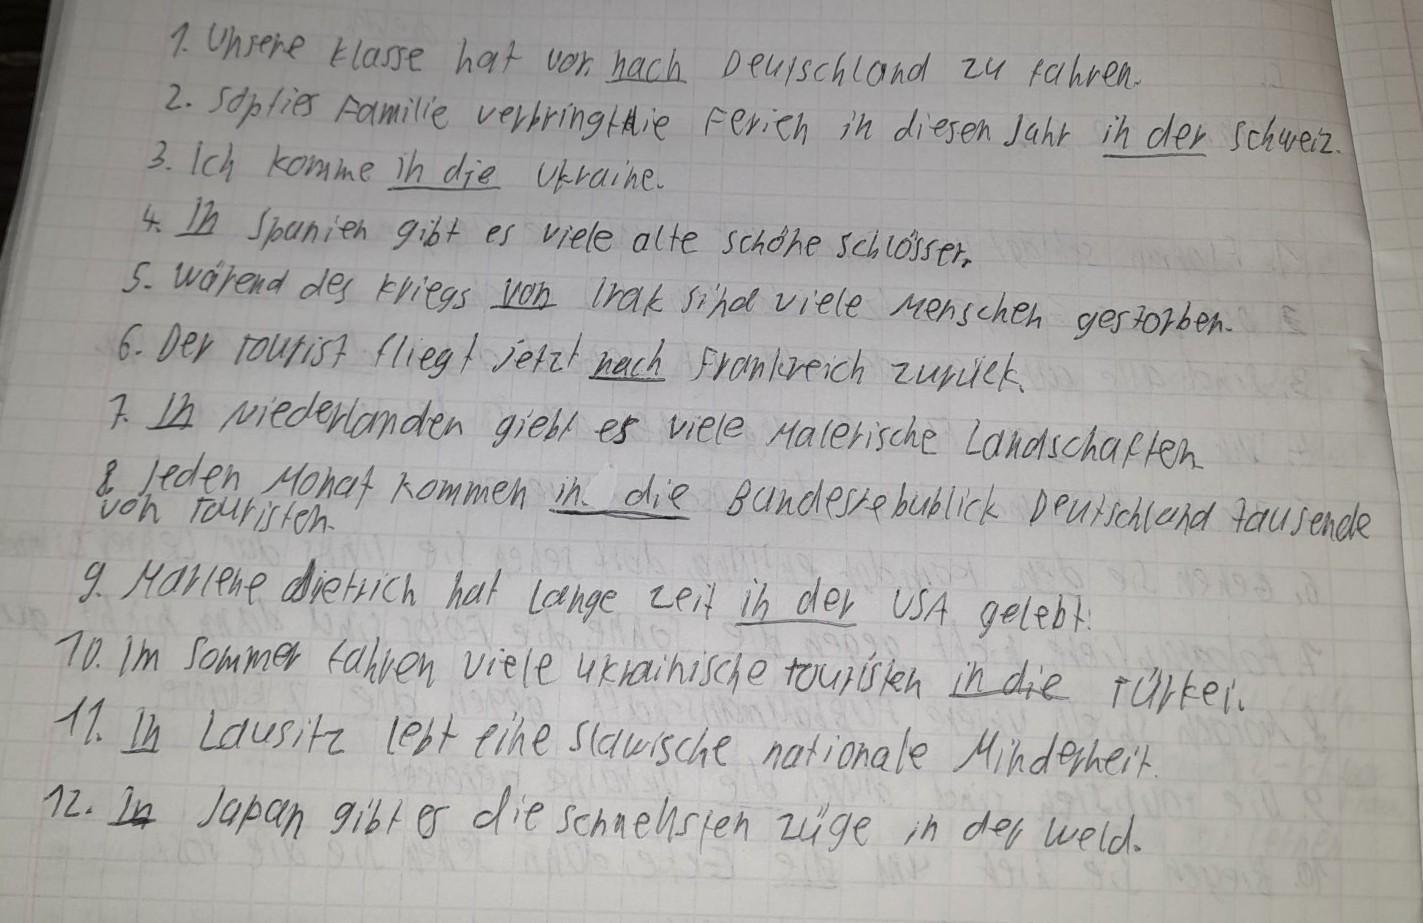 1. Unsere Klasse hat vor, nach Deutschland zu fahren.
2. Sopfies Familie verbringt die Ferien in diesen Jahr in der Schweiz.
3. Ich komme in die Ukraine.
4. In Spanien gibt es viele alte schöne Schlösser.
5. Wärend des Kriegs von Irak sind viele Menschen gestorben.
6. Der Tourist fliegt jetzt nach Frankreich zurück.
7. In Niederlanden giebt es viele Malerische Landschaften
8. Jeden Monat kommen in die Bundesrebublick Deutschland tausende
von Touristen.
9. Marlene Dietrich hat Lange Zeit in der USA gelebt.
10. Im Sommer fahren viele ukrainische touristen in die Türkei.
11. In Lausitz lebt eine slawische nationale Minderheit.
12. In Japan gibt es die schnellsten Züge in der Weld.